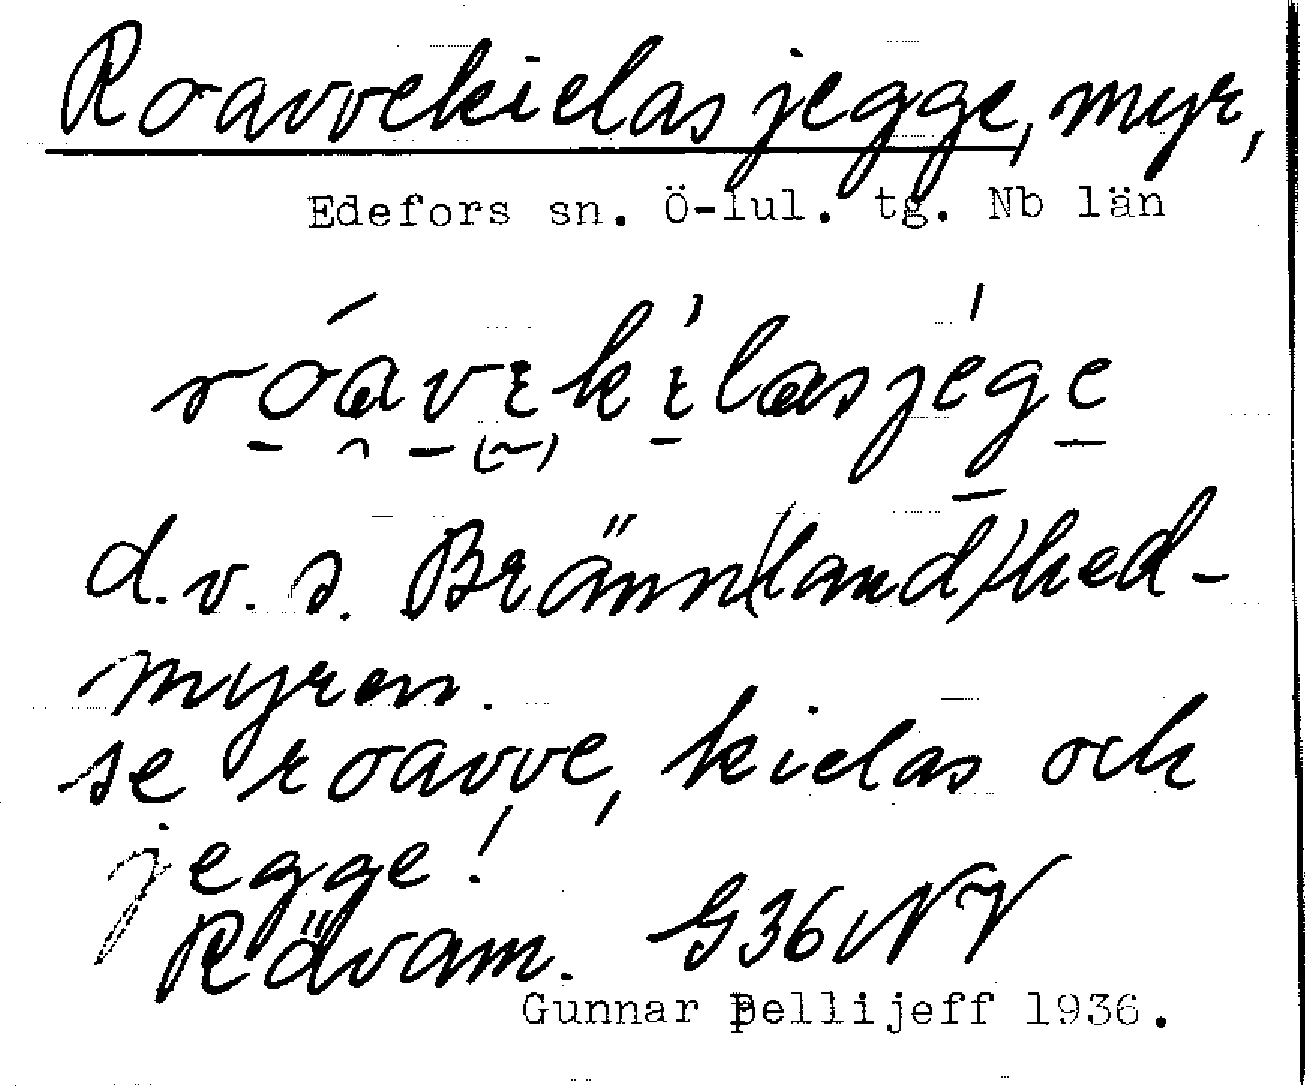 Roavvekielasjegge, myr,
Edefors sn. Ö-lul. tg. Nb län
róavekilasjége
d.v.s. Bränn(land)hed-
myren.
se roavve, kielas och
jegge!
Rävam. G36NV
Gunnar Pellijeff 1936.